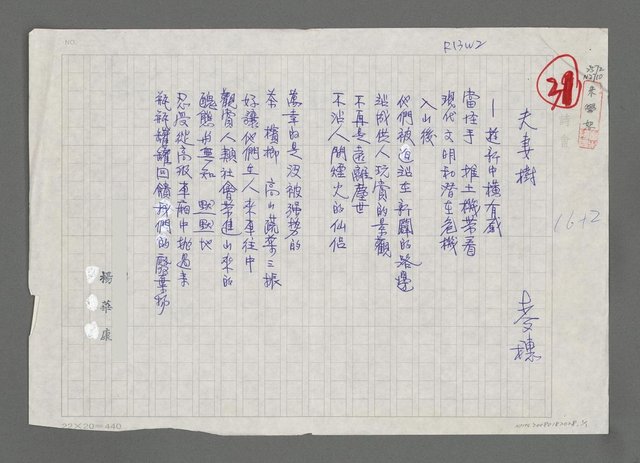 夫妻樹
麥穗
—遊新中橫有感
當怪手 推土機帶著
現代文明和潛在危機
入山後
他們被迫站在新闢的路邊
站成供人玩賞的景觀
不再是遠離塵世
不沾人間煙火的仙侶
萬幸的是沒被強勢的
茶 檳榔 高山蔬菜三振
好讓他們在人來車往中
觀賞人類社會帶進山來的
醜態而無知 默默地
忍受從高級車廂中拋過來
瓶瓶罐罐回饋我們的廢棄物
楊華康
R13W2
31
詩會
16+2
NO.
22×20=440